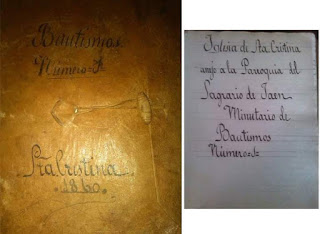 Bautismos
Número 1
Sta Cristina
1860
Iglesia de Sta. Cristina
aneja a la Parroquia del
Sagrario de Jaen
Minutario de
Bautismos
Número 1